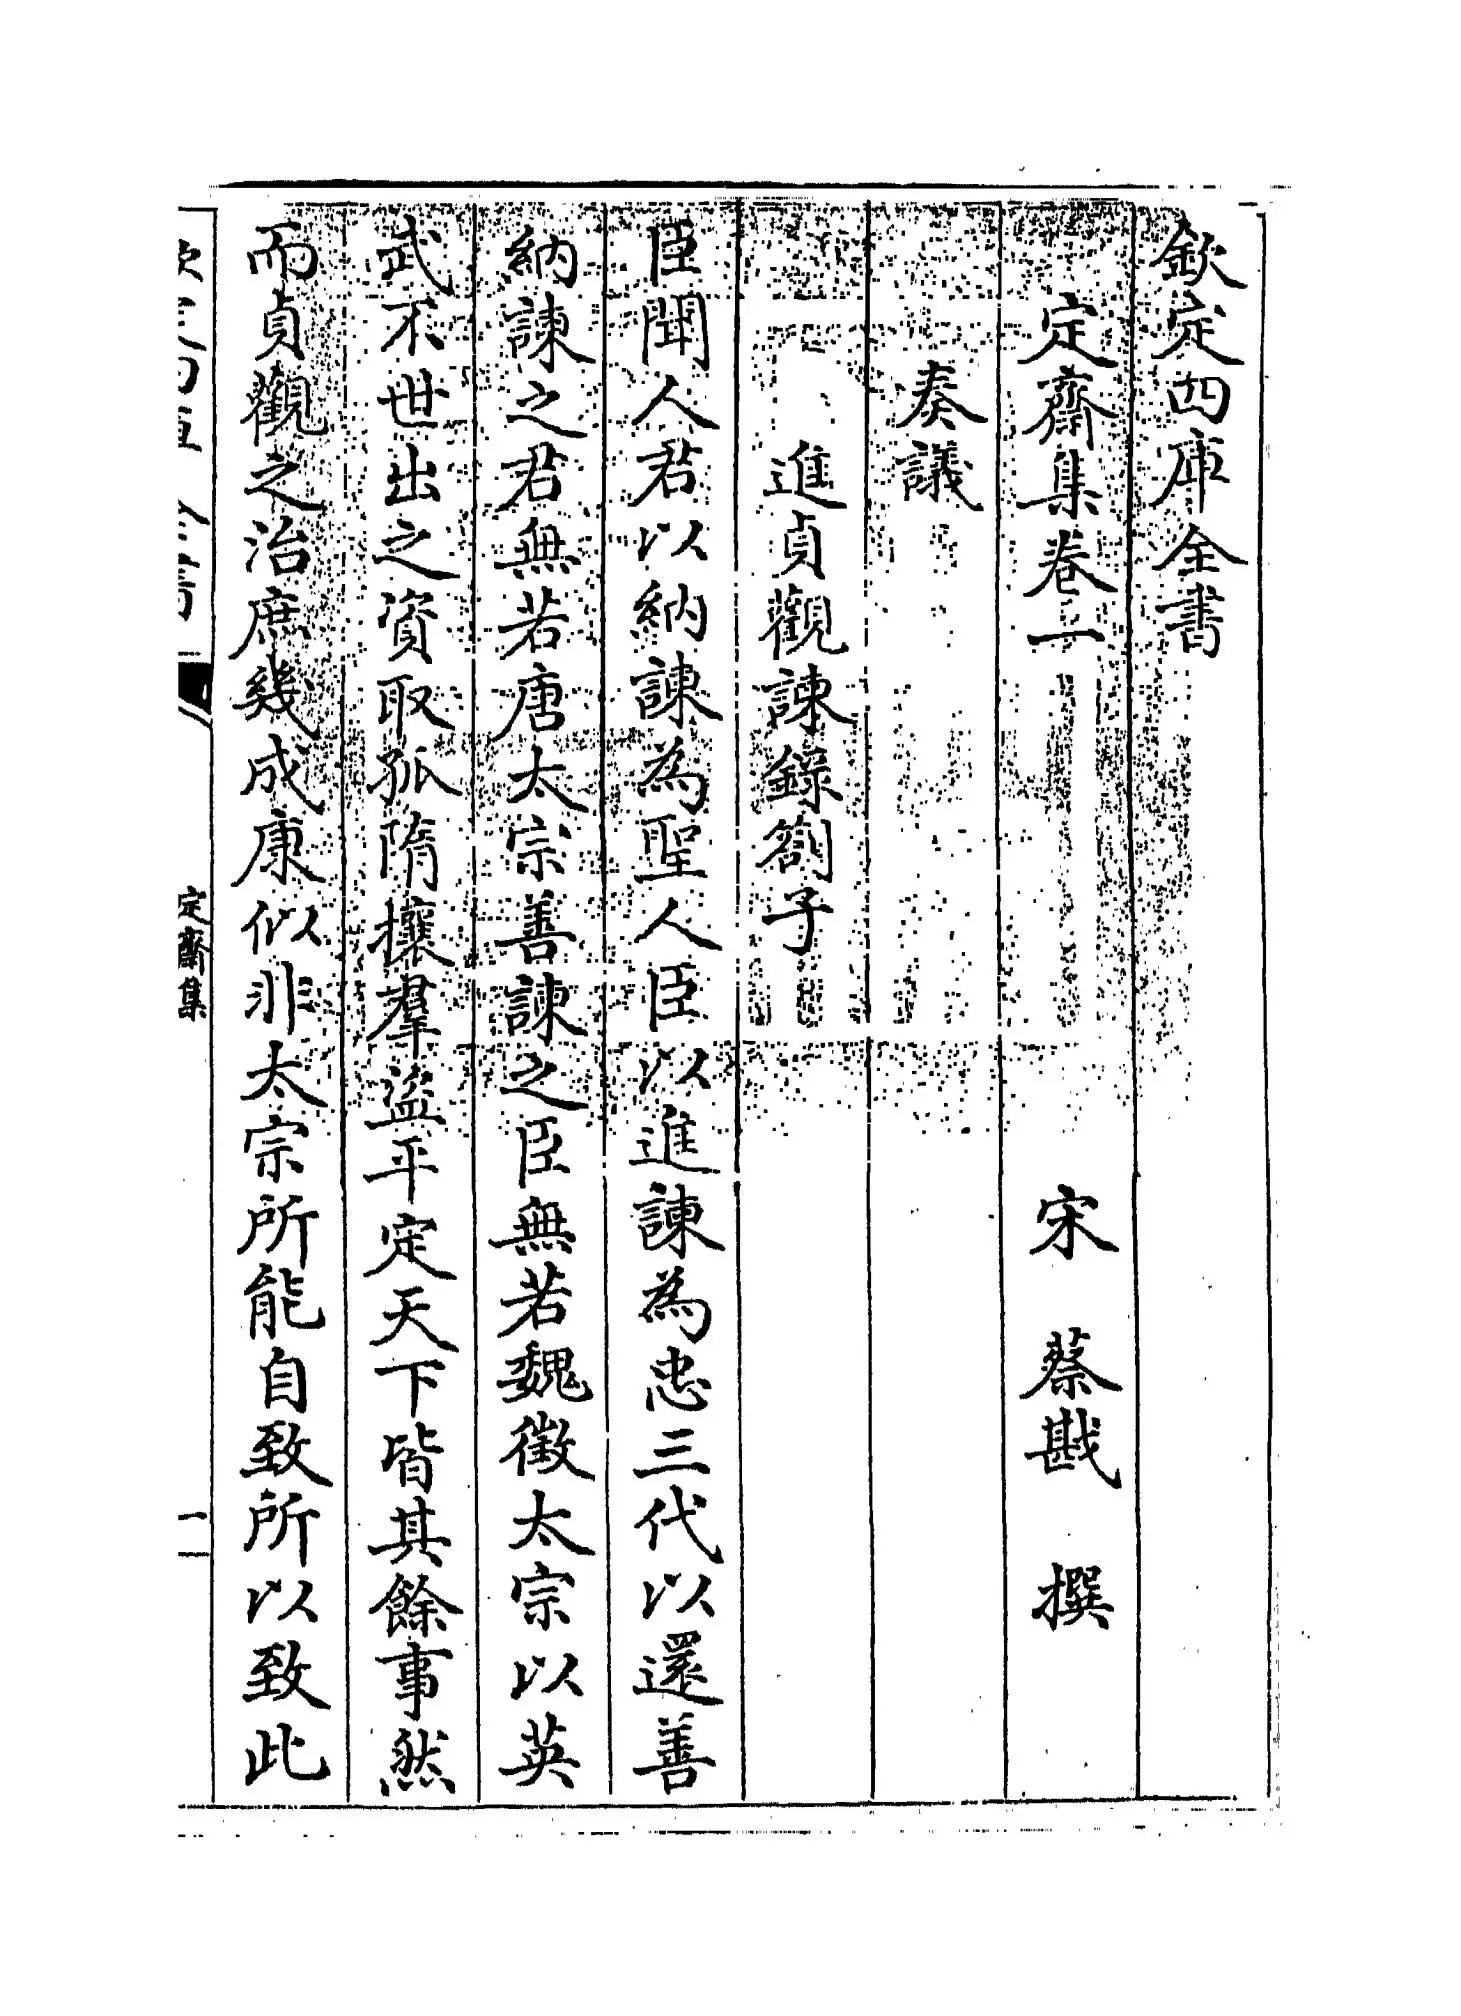 欽定四庫全書
定齋集卷一　　　　　宋　蔡戡　撰
奏議
進貞觀諫錄劄子
臣聞人君以納諫為聖人臣以進諫為忠三代以還善
納諫之君無若唐太宗善諫之臣無若魏徵太宗以英
武不世出之資取孤隋攘羣盜平定天下皆其餘事然
而貞觀之治庶幾成康似非太宗所能自致所以致此
欽定四庫全書　定齋集　一